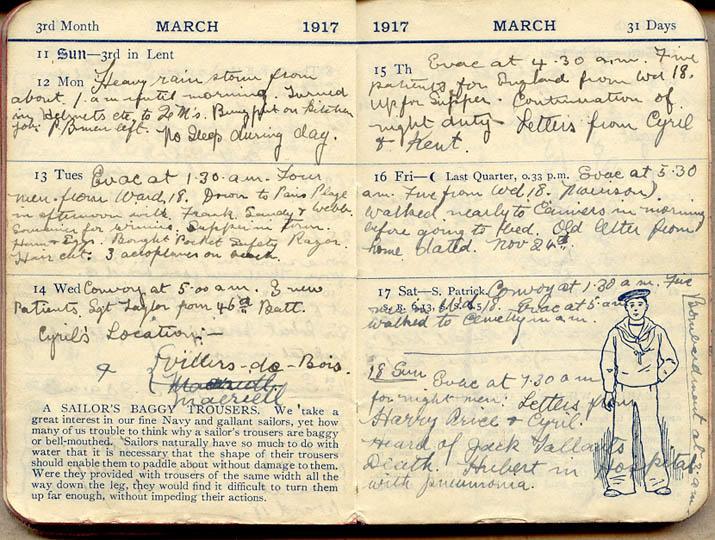 3rd Month MARCH 1917
11 Sun—3rd in Lent
12 Mon Heavy rain storm from
about 1 a.m until morning. Turned
my Helmets etc. to Q M's. Bung put on kitchen
job. left. No Sleep during day.
13 Tues Evac at 1.30 a.m. Four
men from Ward 18. Down to Paris Plage
in afternoon with Frank, Sandy & Webb.
Souvenir for Winnie. Supper in town.
Ham & Eggs. Bought Pocket Safety Razor.
Hair cut. 3 aeroplanes on beach.
14 Wed Convoy at 5.00 a.m. 3 new
Patients, Sgt Taylor from 46th Batt.
Cyril's Location:—
& Villers-de-Bois.
A SAILOR'S BAGGY TROUSERS. We take a
great interest in our fine Navy and gallant sailors, yet how
many of us trouble to think why a sailor's trousers are baggy
or bell-mouthed. Sailors naturally have so much to do with
water that it is necessary that the shape of their trousers
should enable them to paddle about without damage to them.
Were they provided with trousers of the same width all the
way down the leg, they would find it difficult to turn them
up far enough, without impeding their actions.
1917 MARCH 31 Days
15 Th Evac at 4.30 a.m. Five
patients for England from Wd 18.
Up for Supper. Continuation of
night duty. Letters from Cyril
& Kent.
16 Fri—( Last Quarter, 0.33 p.m. Evac at 5.30
am. Five from Wd 18. Morrison).
Walked nearly to Camiers in morning
before going to bed. Old letter from
home dated. Nov 24th.
17 Sat—S. Patrick. Convoy at 1.30 a.m. Five
Wd 18. Evac at 5 am
Walked to Cemetery in a.m.
18 Sun Evac at 7.30 a.m
for night men. Letters from
Harry Price & Cyril.
Heard of Jack Vallants
Death. Hubert in Hospital
with pneumonia.
Bombardment at 2 a.m.